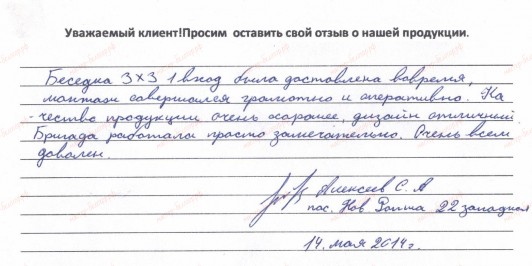 Уважаемый клиент!Просим оставить свой отзыв о нашей продукции.
Беседка 3×3 1 вход была доставлена вовремя,
монтаж совершался грамотно и оперативно. Ка-
-чество продукции очень хорошее, дизайн отличный
Бригада работала просто замечательно. Очень всем
доволен.
Алексеев С. А
пос. Нов Ропша 22 западная
14. мая 2014г.